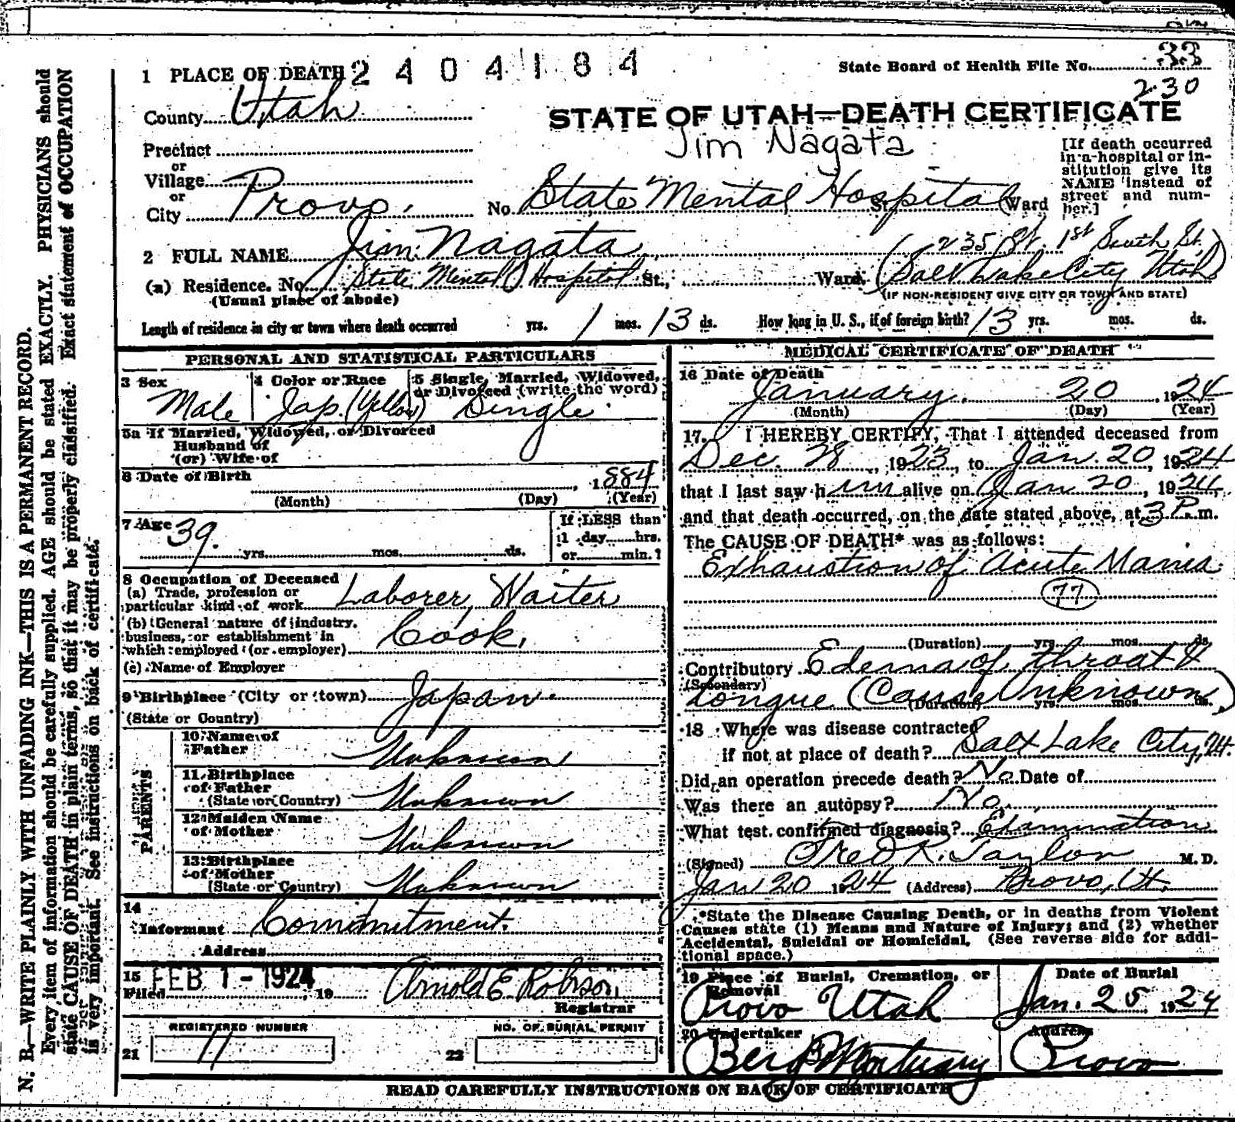 33
1 PLACE OF DEATH 2404184
State Board of Health File No.
230
County Utah
STATE OF UTAH—DEATH CERTIFICATE
Jim Nagata
Precinct
or
Village
or
City Provo. No. State Mental Hospital St. Ward
[If death occurred
in a hospital or in-
stitution give its
NAME instead of
street and num-
ber.]
2 FULL NAME Jim Nagata
(a) Residence. No. State Mental Hospital St., Ward.
(235 W. 1st South St.
Salt Lake City Utah)
(Usual place of abode)
(IF NON-RESIDENT GIVE CITY OR TOWN AND STATE)
Length of residence in city or town where death occurred yrs. 1 mos. 13 ds. How long in U. S., if of foreign birth? 13 yrs. mos. ds.
PERSONAL AND STATISTICAL PARTICULARS
3 Sex
Male
4 Color or Race
Jap. (Yellow)
5 Single, Married, Widowed,
or Divorced (write the word)
Single
5a If Married, Widowed, or Divorced
Husband of
(or) Wife of
6 Date of Birth , 1884
(Month) (Day) (Year)
7 Age 39. yrs. mos. ds.
If LESS than
1 day hrs.
or min.?
8 Occupation of Deceased
(a) Trade, profession or
particular kind of work Laborer, Waiter
(b) General nature of industry,
business, or establishment in
which employed (or employer) Cook,
(c) Name of Employer
9 Birthplace (City or town) Japan.
(State or Country)
PARENTS
10 Name of
Father Unknown
11 Birthplace
of Father
(State or Country) Unknown
12 Maiden Name
of Mother Unknown
13 Birthplace
of Mother
(State or Country) Unknown
14
Informant Commitment.
Address
15 FEB 1 - 1924
Filed , 19 Arnold E. Robison,
Registrar
REGISTERED NUMBER
21 11
NO. OF BURIAL PERMIT
22
MEDICAL CERTIFICATE OF DEATH
16 Date of Death
January 20 , 1924
(Month) (Day) (Year)
17. I HEREBY CERTIFY, That I attended deceased from
Dec. 28 , 1923, to Jan. 20, 1924
that I last saw him alive on Jan 20, 1924
and that death occurred, on the date stated above, at 3 P. m.
The CAUSE OF DEATH* was as follows:
Exhaustion of Acute Mania
77
(Duration) yrs. mos. ds.
Contributory Edema of throat &
(Secondary)
tongue (Cause Unknown)
(Duration) yrs. mos. ds.
18 Where was disease contracted
if not at place of death? Salt Lake City, Ut.
Did an operation precede death? No Date of
Was there an autopsy? No
What test confirmed diagnosis? Examination
(Signed) Fred R. Taylor M. D.
Jan 20 1924 (Address) Provo, Ut.
*State the Disease Causing Death, or in deaths from Violent
Causes state (1) Means and Nature of Injury; and (2) whether
Accidental, Suicidal or Homicidal. (See reverse side for addi-
tional space.)
19 Place of Burial, Cremation, or
Removal
Provo Utah
Date of Burial
Jan. 25 1924
20 Undertaker
Berg Mortuary
Address
Provo
READ CAREFULLY INSTRUCTIONS ON BACK OF CERTIFICATE
N. B.—WRITE PLAINLY WITH UNFADING INK—THIS IS A PERMANENT RECORD.
Every item of information should be carefully supplied. AGE should be stated EXACTLY. PHYSICIANS should
state CAUSE OF DEATH in plain terms, so that it may be properly classified. Exact statement of OCCUPATION
is very important. See instructions on back of certificate.